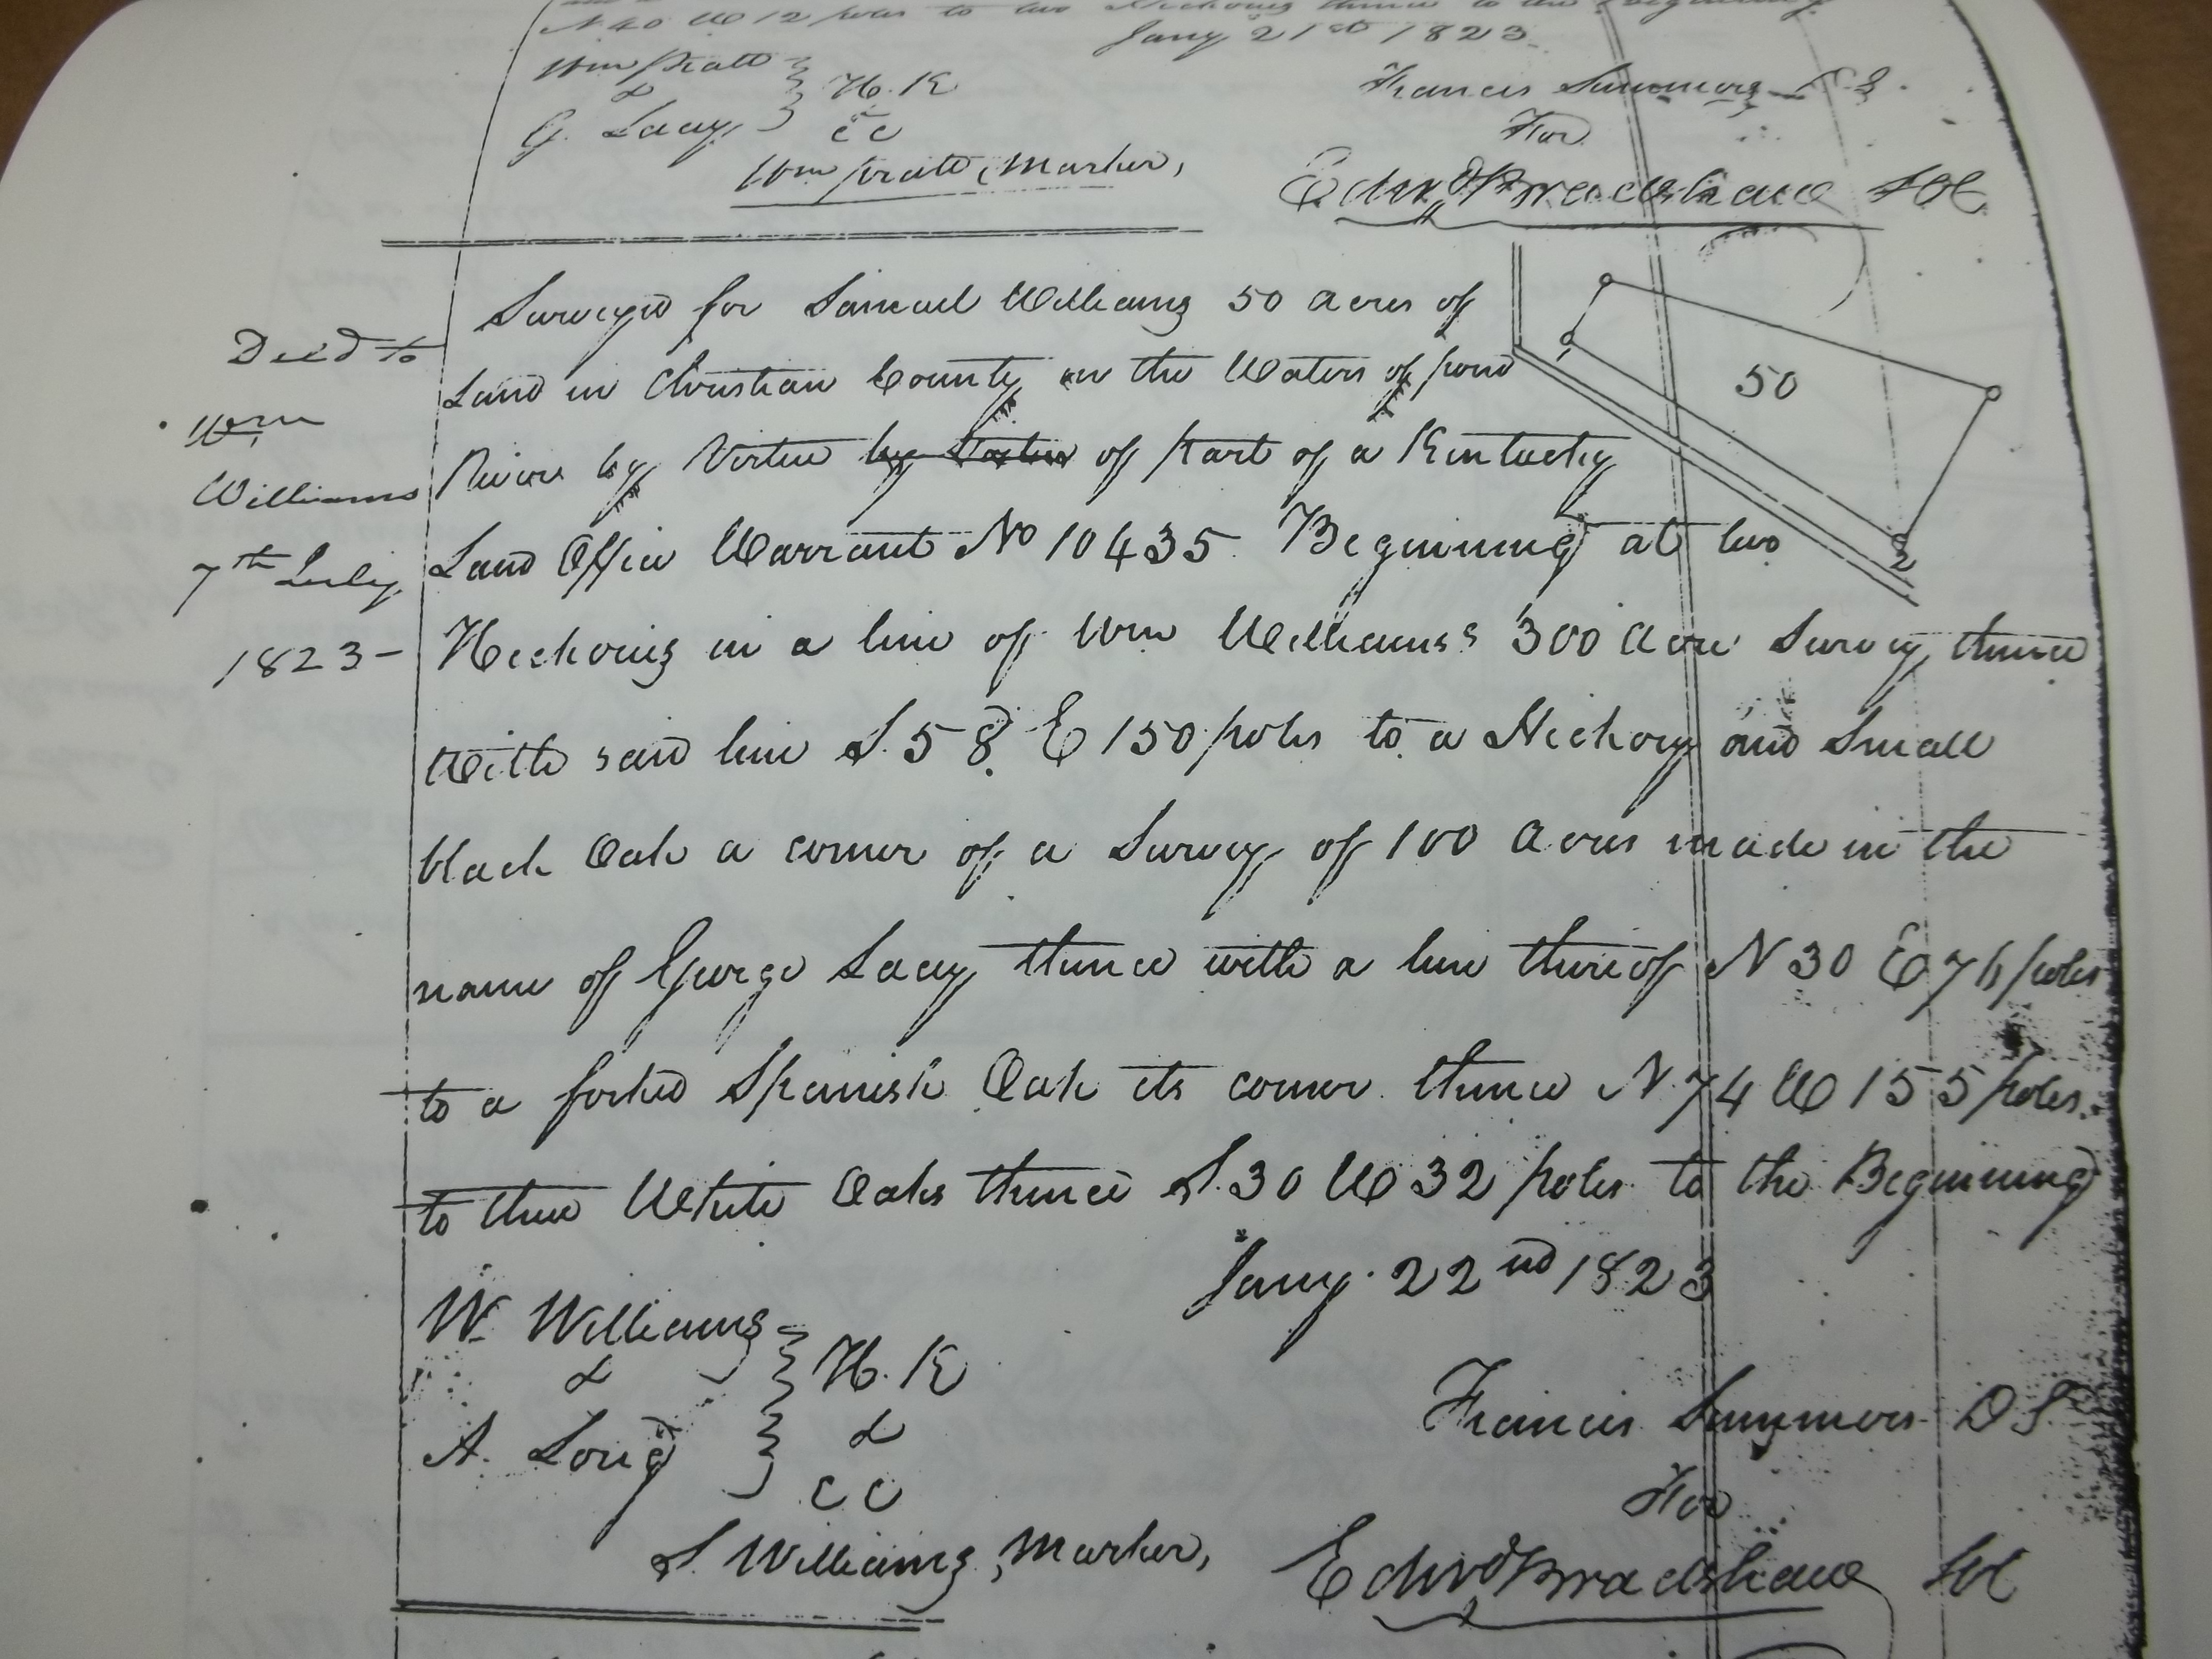 N 40 W 12 poles to two Hickories thence to the Beginning
Jany 21st 1823
Wm Pratt
&
G. Lacy
H. K
CC
Wm Pratt, Marker,
Francis Summers D.S.
For
Edwd Bradshaw SCC
50
1
2
Deed to
Wm
Williams
7th July
1823-
Survey'd for Samuel Williams 50 acres of
Land in Christian County on the Waters of pond
River by Virtue by Vartue of part of a Kentucky
Land Office Warrant No 10435. Beginning at two
Hickories in a line of Wm Williams's 300 Acre Survey thence
with said line S. 58 E 150 poles to a Hickory and Small
black Oak a corner of a Survey of 100 Acres made in the
name of George Lacy thence with a line thereof N 30 E 76 poles
to a forked Spanish Oak its corner thence N. 74 W 155 poles.
to three White Oaks thence S. 30 W 32 poles to the Beginning
Jany. 22nd 1823
W. Williams
&
A. Long
H. K
&
CC
S. Williams, Marker,
Francis Summers DS
For
Edwd Bradshaw SCC